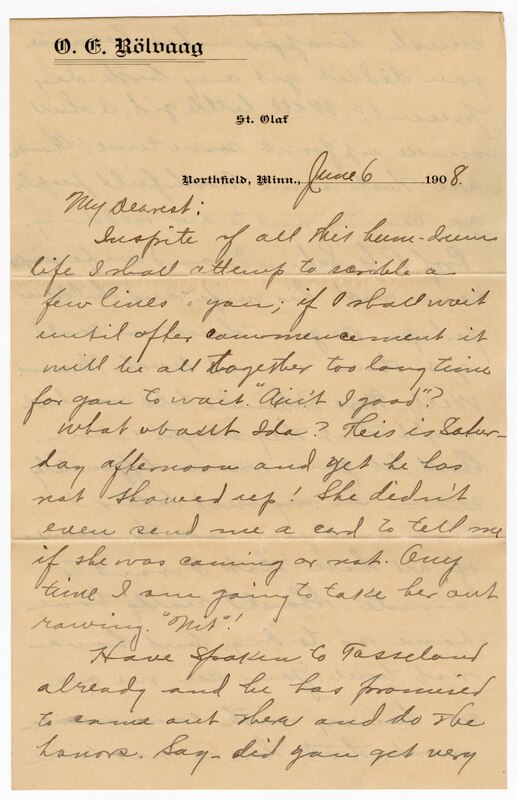 O. E. Rölvaag
St. Olaf
Northfield, Minn., June 6 1908.
My Dearest:
Inspite of all this hum-drum
life I shall attemp to scrible a
few lines to you; if I shall wait
until after commencement it
will be all together too long time
for you to wait. "Ain't I good"?
What about Ida? This is Satur-
day afternoon and yet he has
not showed up! She didn't
even send me a card to tell me
if she was coming or not. Any
time I am going to take her out
rowing. "Nit"!
Have spoken to Tasseland
already and he has promised
to come out there and do the
honors. Say - did you get very